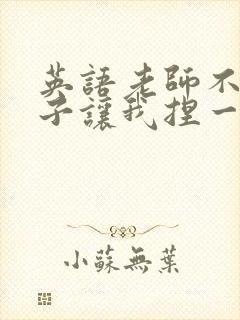 英語老師不
子讓我捏一
小蘇無葉